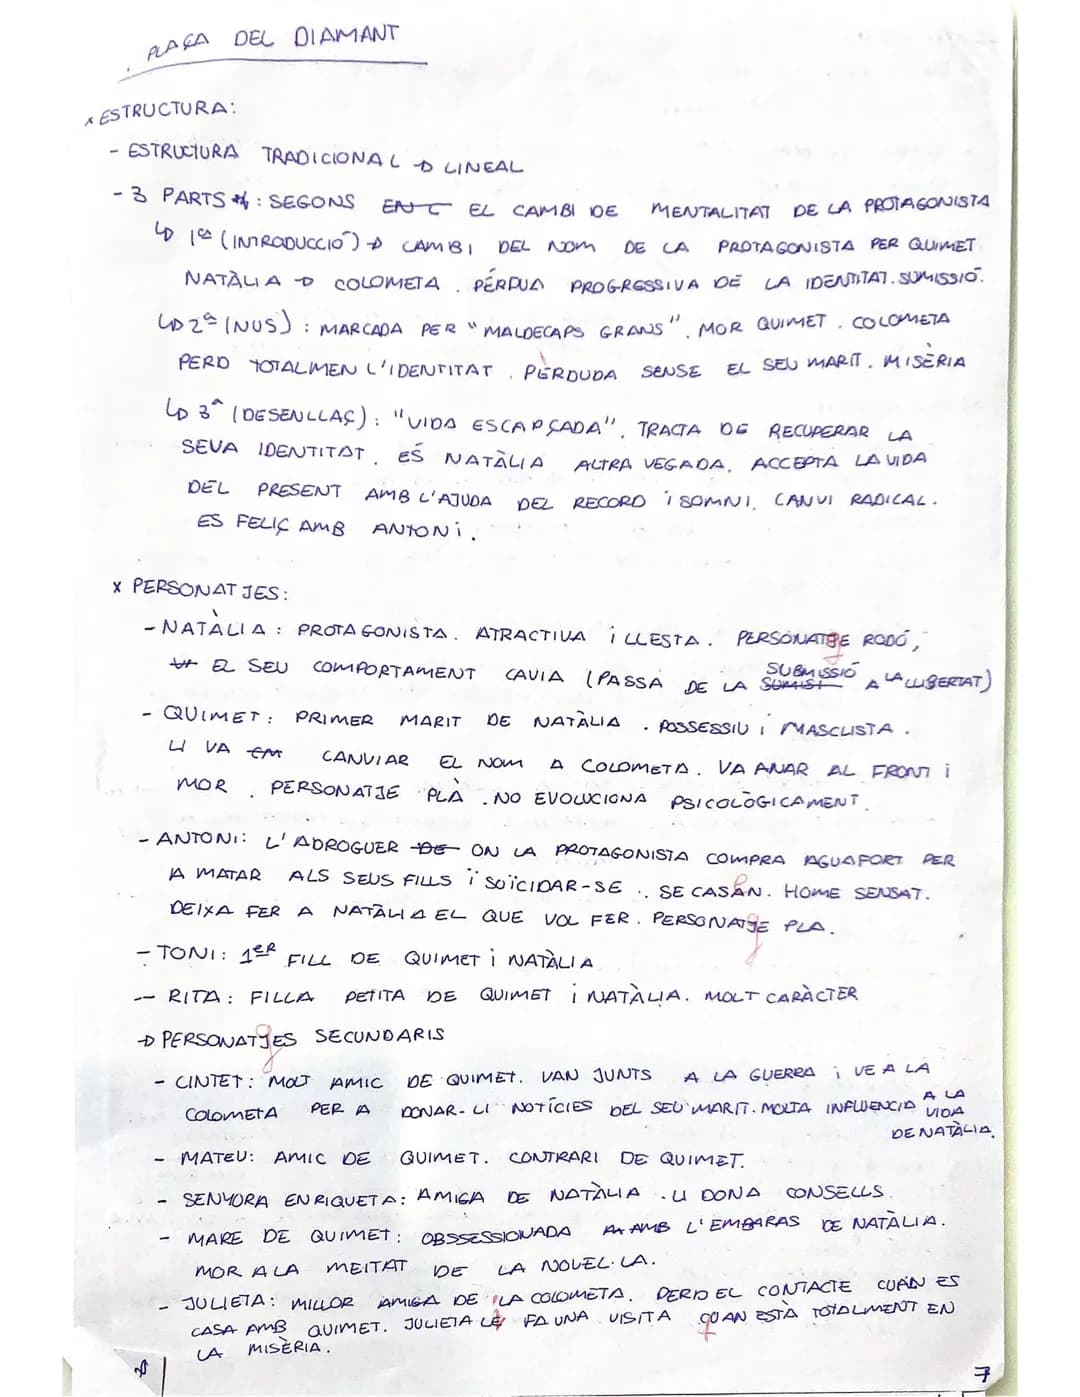 . PLAÇA DEL DIAMANT
x ESTRUCTURA:
- ESTRUCTURA TRADICIONAL → LINEAL
- 3 PARTS : SEGONS EL CAMBI DE MENTALITAT DE LA PROTAGONISTA
↳ 1ª (INTRODUCCIÓ) → CAMBI DEL NOM DE LA PROTAGONISTA PER QUIMET
NATÀLIA → COLOMETA . PÉRDUA PROGRESSIVA DE LA IDENTITAT. SUMISSIÓ.
↳ 2ª (NUS) : MARCADA PER "MALDECAPS GRANS". MOR QUIMET . COLOMETA
PERD TOTALMEN L'IDENTITAT . PERDUDA SENSE EL SEU MARIT. MISÈRIA
↳ 3ª (DESENLLAÇ) : "VIDA ESCAPÇADA". TRACTA DE RECUPERAR LA
SEVA IDENTITAT. ÉS NATÀLIA ALTRA VEGADA. ACCEPTA LA VIDA
DEL PRESENT AMB L'AJUDA DEL RECORD i SOMNI. CANVI RADICAL.
ES FELIÇ AMB ANTONi.
x PERSONATJES:
- NATÀLIA : PROTAGONISTA. ATRACTIVA i LLESTA. PERSONATGE RODÓ,
EL SEU COMPORTAMENT CAVIA (PASSA DE LA SUBMISSIÓ A LA LLIBERTAT)
- QUIMET : PRIMER MARIT DE NATÀLIA . POSSESSIU i MASCLISTA .
LI VA CANVIAR EL NOM A COLOMETA. VA ANAR AL FRONT i
MOR . PERSONATJE PLÀ . NO EVOLUCIONA PSICOLÒGICAMENT.
- ANTONi: L'ADROGUER ON LA PROTAGONISTA COMPRA AGUAFORT PER
A MATAR ALS SEUS FILLS i SOÏCIDAR-SE . SE CASAN. HOME SENSAT.
DEIXA FER A NATÀLIA EL QUE VOL FER. PERSONATGE PLA.
- TONI: 1ER FILL DE QUIMET i NATÀLIA
- RITA : FILLA PETITA DE QUIMET i NATÀLIA. MOLT CARÀCTER
→ PERSONATGES SECUNDARIS
- CINTET : MOLT AMIC DE QUIMET. VAN JUNTS A LA GUERRA i VE A LA
COLOMETA PER A DONAR-LI NOTÍCIES DEL SEU MARIT. MOLTA INFLUENCIA A LA
VIDA
DE NATÀLIA.
- MATEU: AMIC DE QUIMET. CONTRARI DE QUIMET.
- SENYORA ENRIQUETA: AMIGA DE NATÀLIA . LI DONA CONSELLS.
- MARE DE QUIMET : OBSSESSIONADA AMB L'EMBARAS DE NATÀLIA.
MOR A LA MEITAT DE LA NOVEL·LA.
- JULIETA: MILLOR AMIGA DE LA COLOMETA. PERD EL CONTACTE CUAN ES
CASA AMB QUIMET. JULIETA LE FA UNA VISITA QUAN ESTÀ TOTALMENT EN
LA MISÈRIA.
7